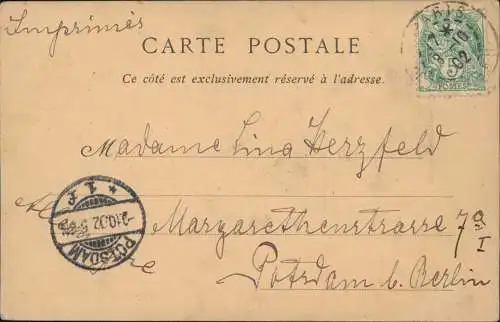 Imprimés
CARTE POSTALE
Ce côté est exclusivement réservé à l'adresse.
Madame Lina Herzfeld
Margarethenstrasse 7a
I
Potsdam b. Berlin
POTSDAM
2.10.02
POSTES
5
02